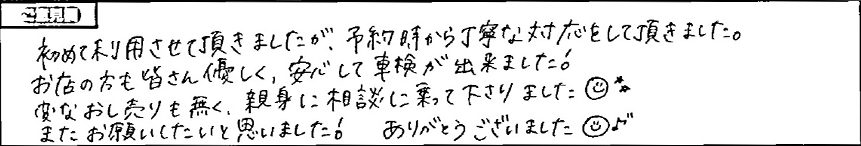 ご意見欄
初めて利用させて頂きましたが、予約時から丁寧な対応をして頂きました。
お店の方も皆さん優しく、安心して車検が出来ました!
変なおし売りも無く、親身に相談に乗って下さりました☺**
またお願いしたいと思いました! ありがとうございました☺♪